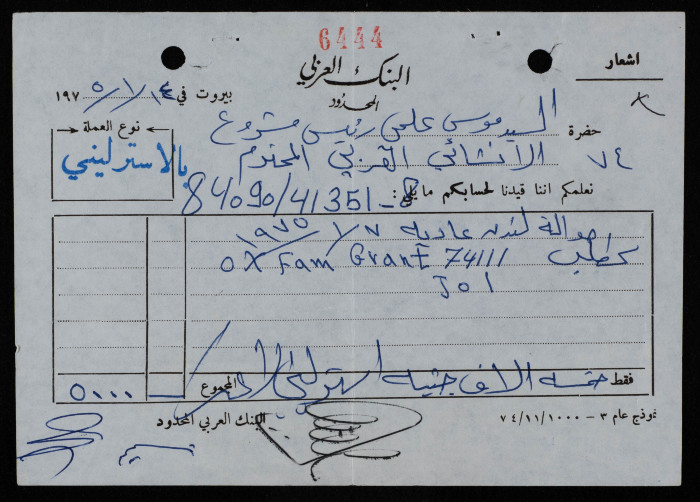 6444
البنك العربي
المحدود
اشعار
بيروت في ١٤/١/١٩٧٥
نوع العملة
بالاسترليني
حضرة السيد موسى علمي رئيس مشروع
الانشائي العربي المحترم
٧٤
نعلمكم اننا قيدنا لحسابكم ما يلي:
84090/41351-8
حوالة لندن عاديه ١٩٧٥/١/٧
OXFam Grant 74111
Jo1
فقط خمسه الاف جنيه استرليني
المجموع
٥٠٠٠
البنك العربي المحدود
نموذج عام ٣ - ٧٤/١١/١٠٠٠